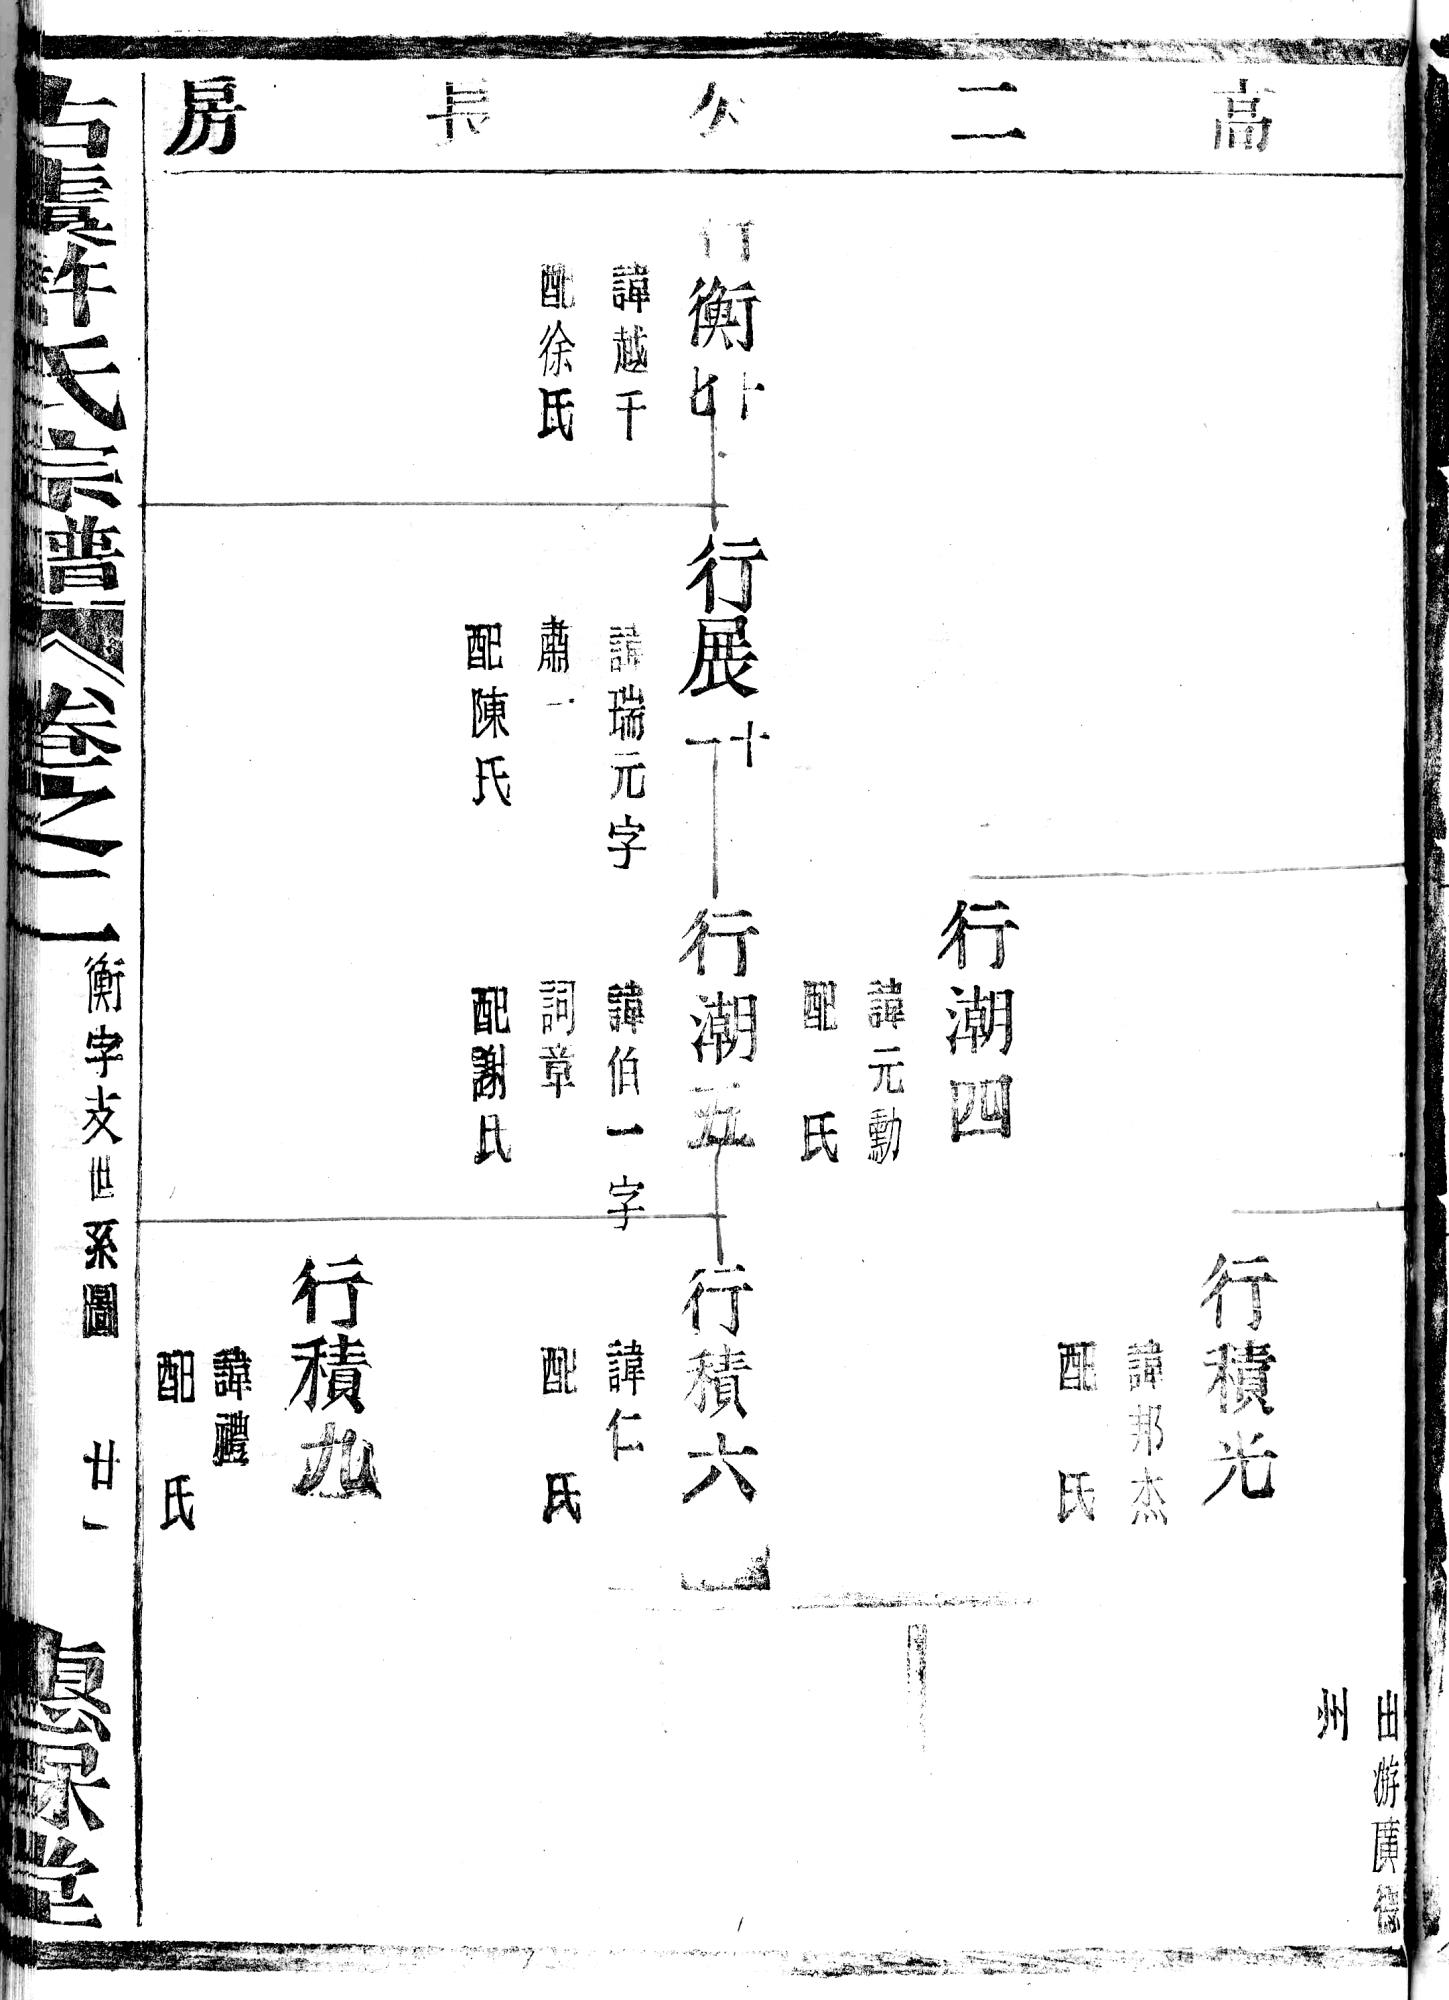 高二公長房
行衡十七
諱越千
配徐氏
行展十一
諱瑞元字
肅一
配陳氏
行潮四
諱元勳
配 氏
行潮五
諱伯一字
詞章
配謝氏
行積光
諱邦杰
配 氏
行積六
諱仁
配 氏
行積九
諱禮
配 氏
出游廣德
州
古虞許氏宗譜
卷之二
衡字支世系圖
廿一